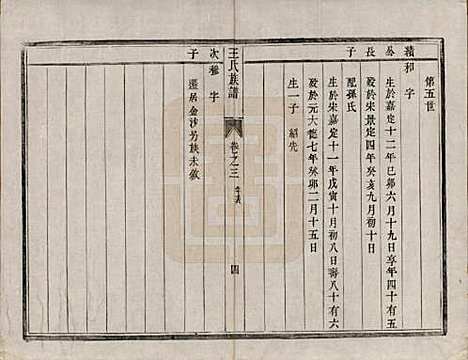 第五世
績和 字
易 生於嘉定十二年己卯六月十九日享年四十有五
長 歿於宋景定四年癸亥九月初十日
子 配孫氏
生於宋嘉定十一年戊寅十月初八日壽八十有六
歿於元大德七年癸卯二月十五日
生一子 紹先
王氏族譜 卷之三 世表 四
次 字
子 遷居金沙另族未敘